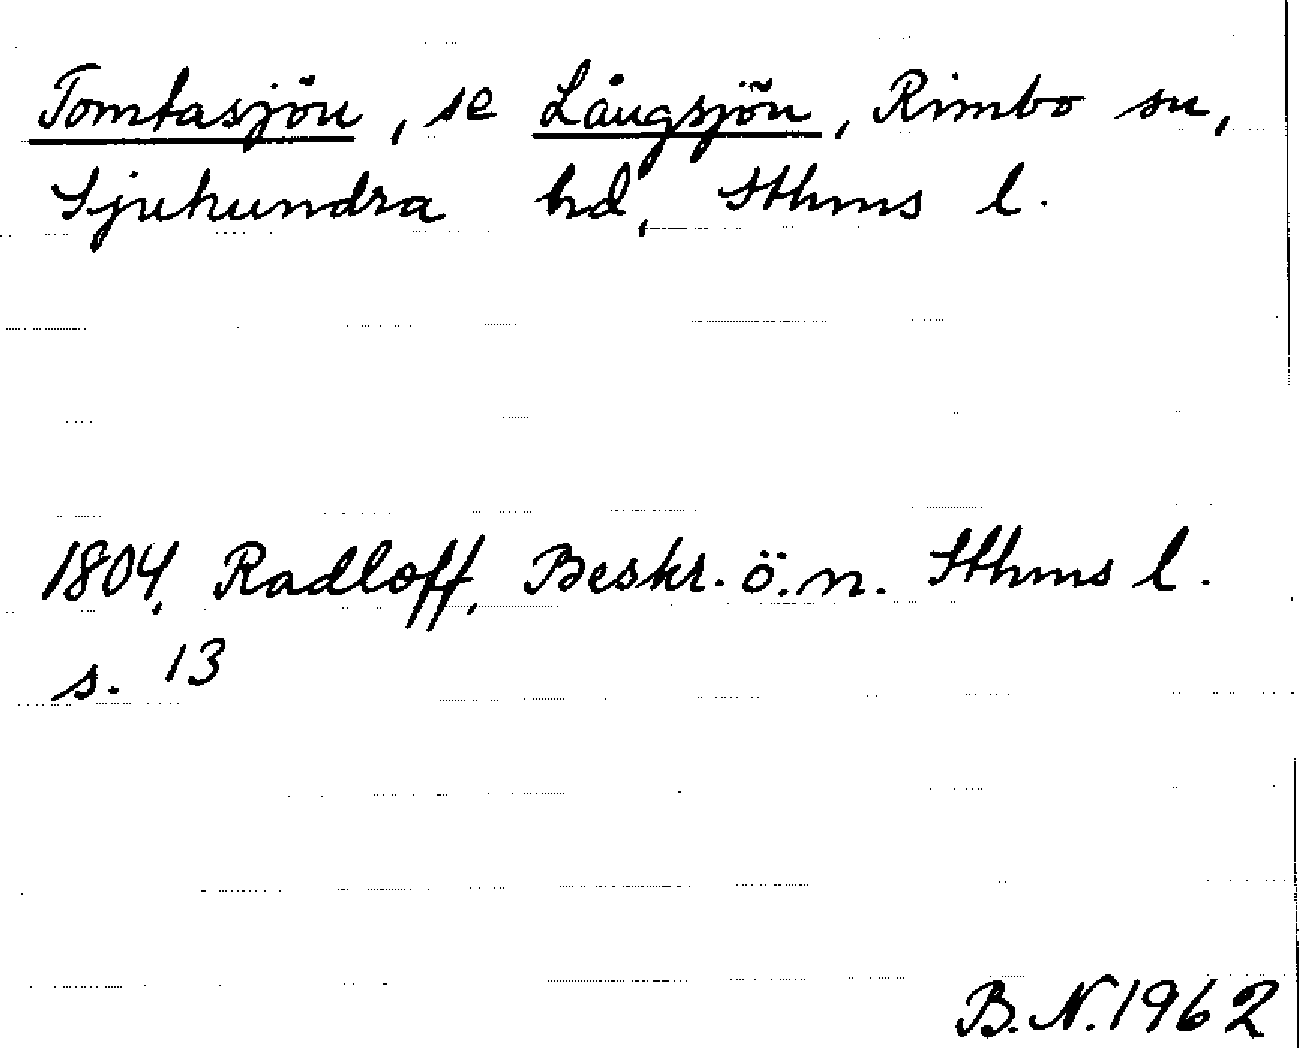 Tomtasjön, se Långsjön, Rimbo sn,
Sjuhundra hd, Sthms l.
1804, Radloff, Beskr. ö. n. Sthms l.
s. 13
B.N. 1962